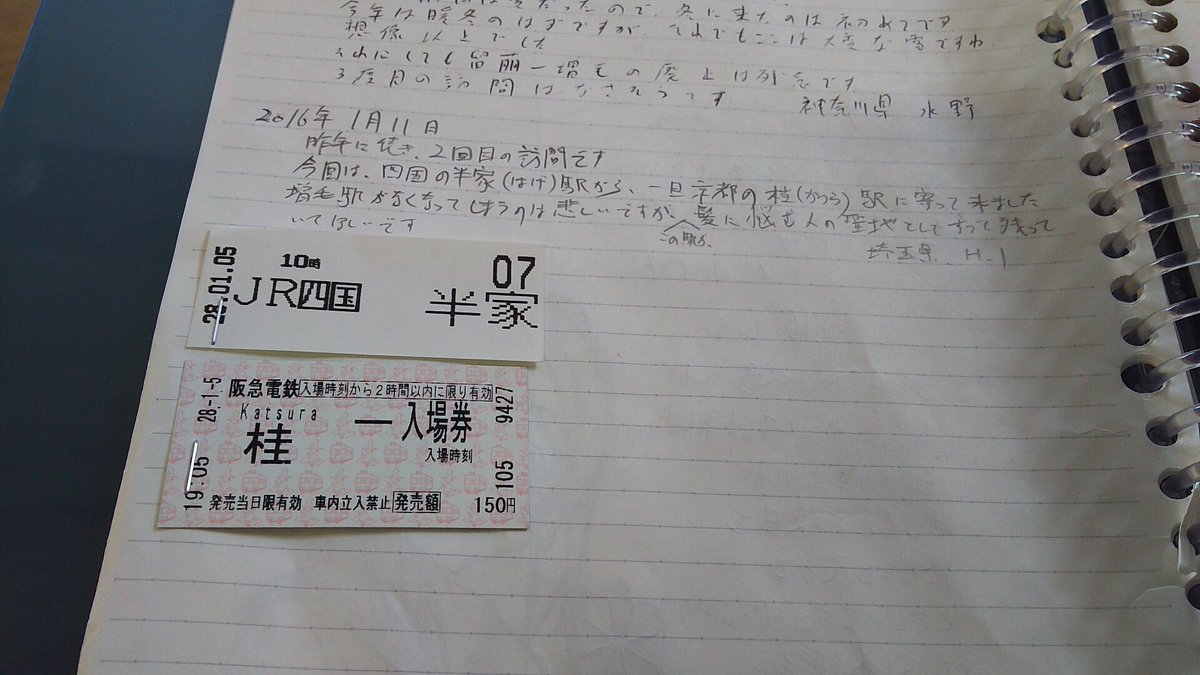 今年は暖冬のはずですが、それでもここは大変な雪ですね
想像以上でした
それにしても留萌ー増毛の廃止は残念です
3度目の訪問はなさそうです 神奈川県 水野
2016年1月11日
昨年に続き、2回目の訪問です
今回は、四国の半家(はげ)駅から、一旦京都の桂(かつら)駅に寄って来ました
増毛駅がなくなってしまうのは悲しいですが、髪に悩む人の聖地としてずっと残って
この駅が、
いてほしいです
埼玉県 H.I
28.01.05
10時
07
JR四国 半家
28.-1.-5
19:05
阪急電鉄 入場時刻から2時間以内に限り有効
Katsura
桂 ー入場券
入場時刻
発売当日限有効 車内立入禁止 発売額 150円
105 9427